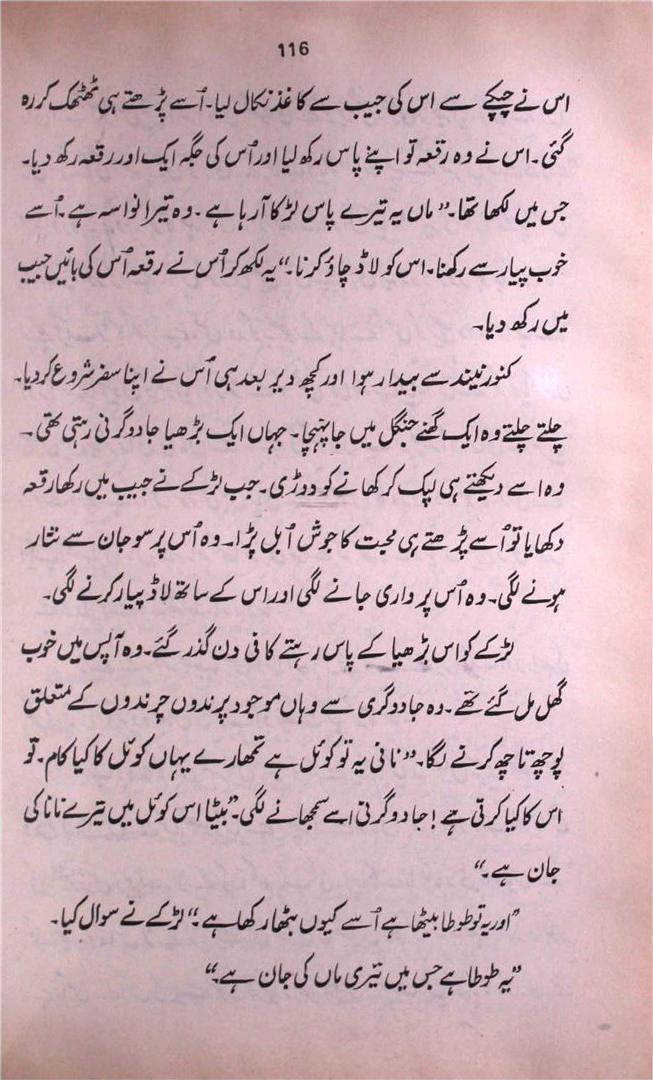 116
اس نے چپکے سے اس کی جیب سے کاغذ نکال لیا۔ اُسے پڑھتے ہی ٹھٹھک کر رہ
گئی۔ اس نے وہ رقعہ تو اپنے پاس رکھ لیا اور اُس کی جگہ ایک اور رقعہ رکھ دیا۔
جس میں لکھا تھا۔ ”ماں یہ تیرے پاس لڑکا آ رہا ہے۔ وہ تیرا نواسہ ہے۔ اُسے
خوب پیار سے رکھنا۔ اس کو لاڈ چاؤ کرنا۔“ یہ لکھ کر اُس نے رقعہ اُس کی بائیں جیب
میں رکھ دیا۔
کنور نیند سے بیدار ہوا اور کچھ دیر بعد ہی اُس نے اپنا سفر شروع کر دیا۔
چلتے چلتے وہ ایک گھنے جنگل میں جا پہنچا۔ جہاں ایک بڑھیا جادوگرنی رہتی تھی۔
وہ اسے دیکھتے ہی لپک کر کھانے کو دوڑی۔ جب لڑکے نے جیب میں رکھا رقعہ
دکھایا تو اُسے پڑھتے ہی محبت کا جوش اُبل پڑا۔ وہ اُس پر سو جان سے نثار
ہونے لگی۔ وہ اُس پر واری جانے لگی اور اس کے ساتھ لاڈ پیار کرنے لگی۔
لڑکے کو اس بڑھیا کے پاس رہتے کافی دن گذر گئے۔ وہ آپس میں خوب
گھل مل گئے تھے۔ وہ جادوگری سے وہاں موجود پرندوں چرندوں کے متعلق
پوچھ تاچھ کرنے لگا۔ ”نانی یہ تو کوئل ہے تمھارے یہاں کوئل کا کیا کام۔ تو
اس کا کیا کرتی ہے! جادوگرنی اسے سمجھانے لگی۔ ”بیٹا اس کوئل میں تیرے نانا کی
جان ہے۔“
”اور یہ تو طوطا بیٹھا ہے اُسے کیوں بٹھا رکھا ہے۔“ لڑکے نے سوال کیا۔
”یہ طوطا ہے جس میں تیری ماں کی جان ہے۔“